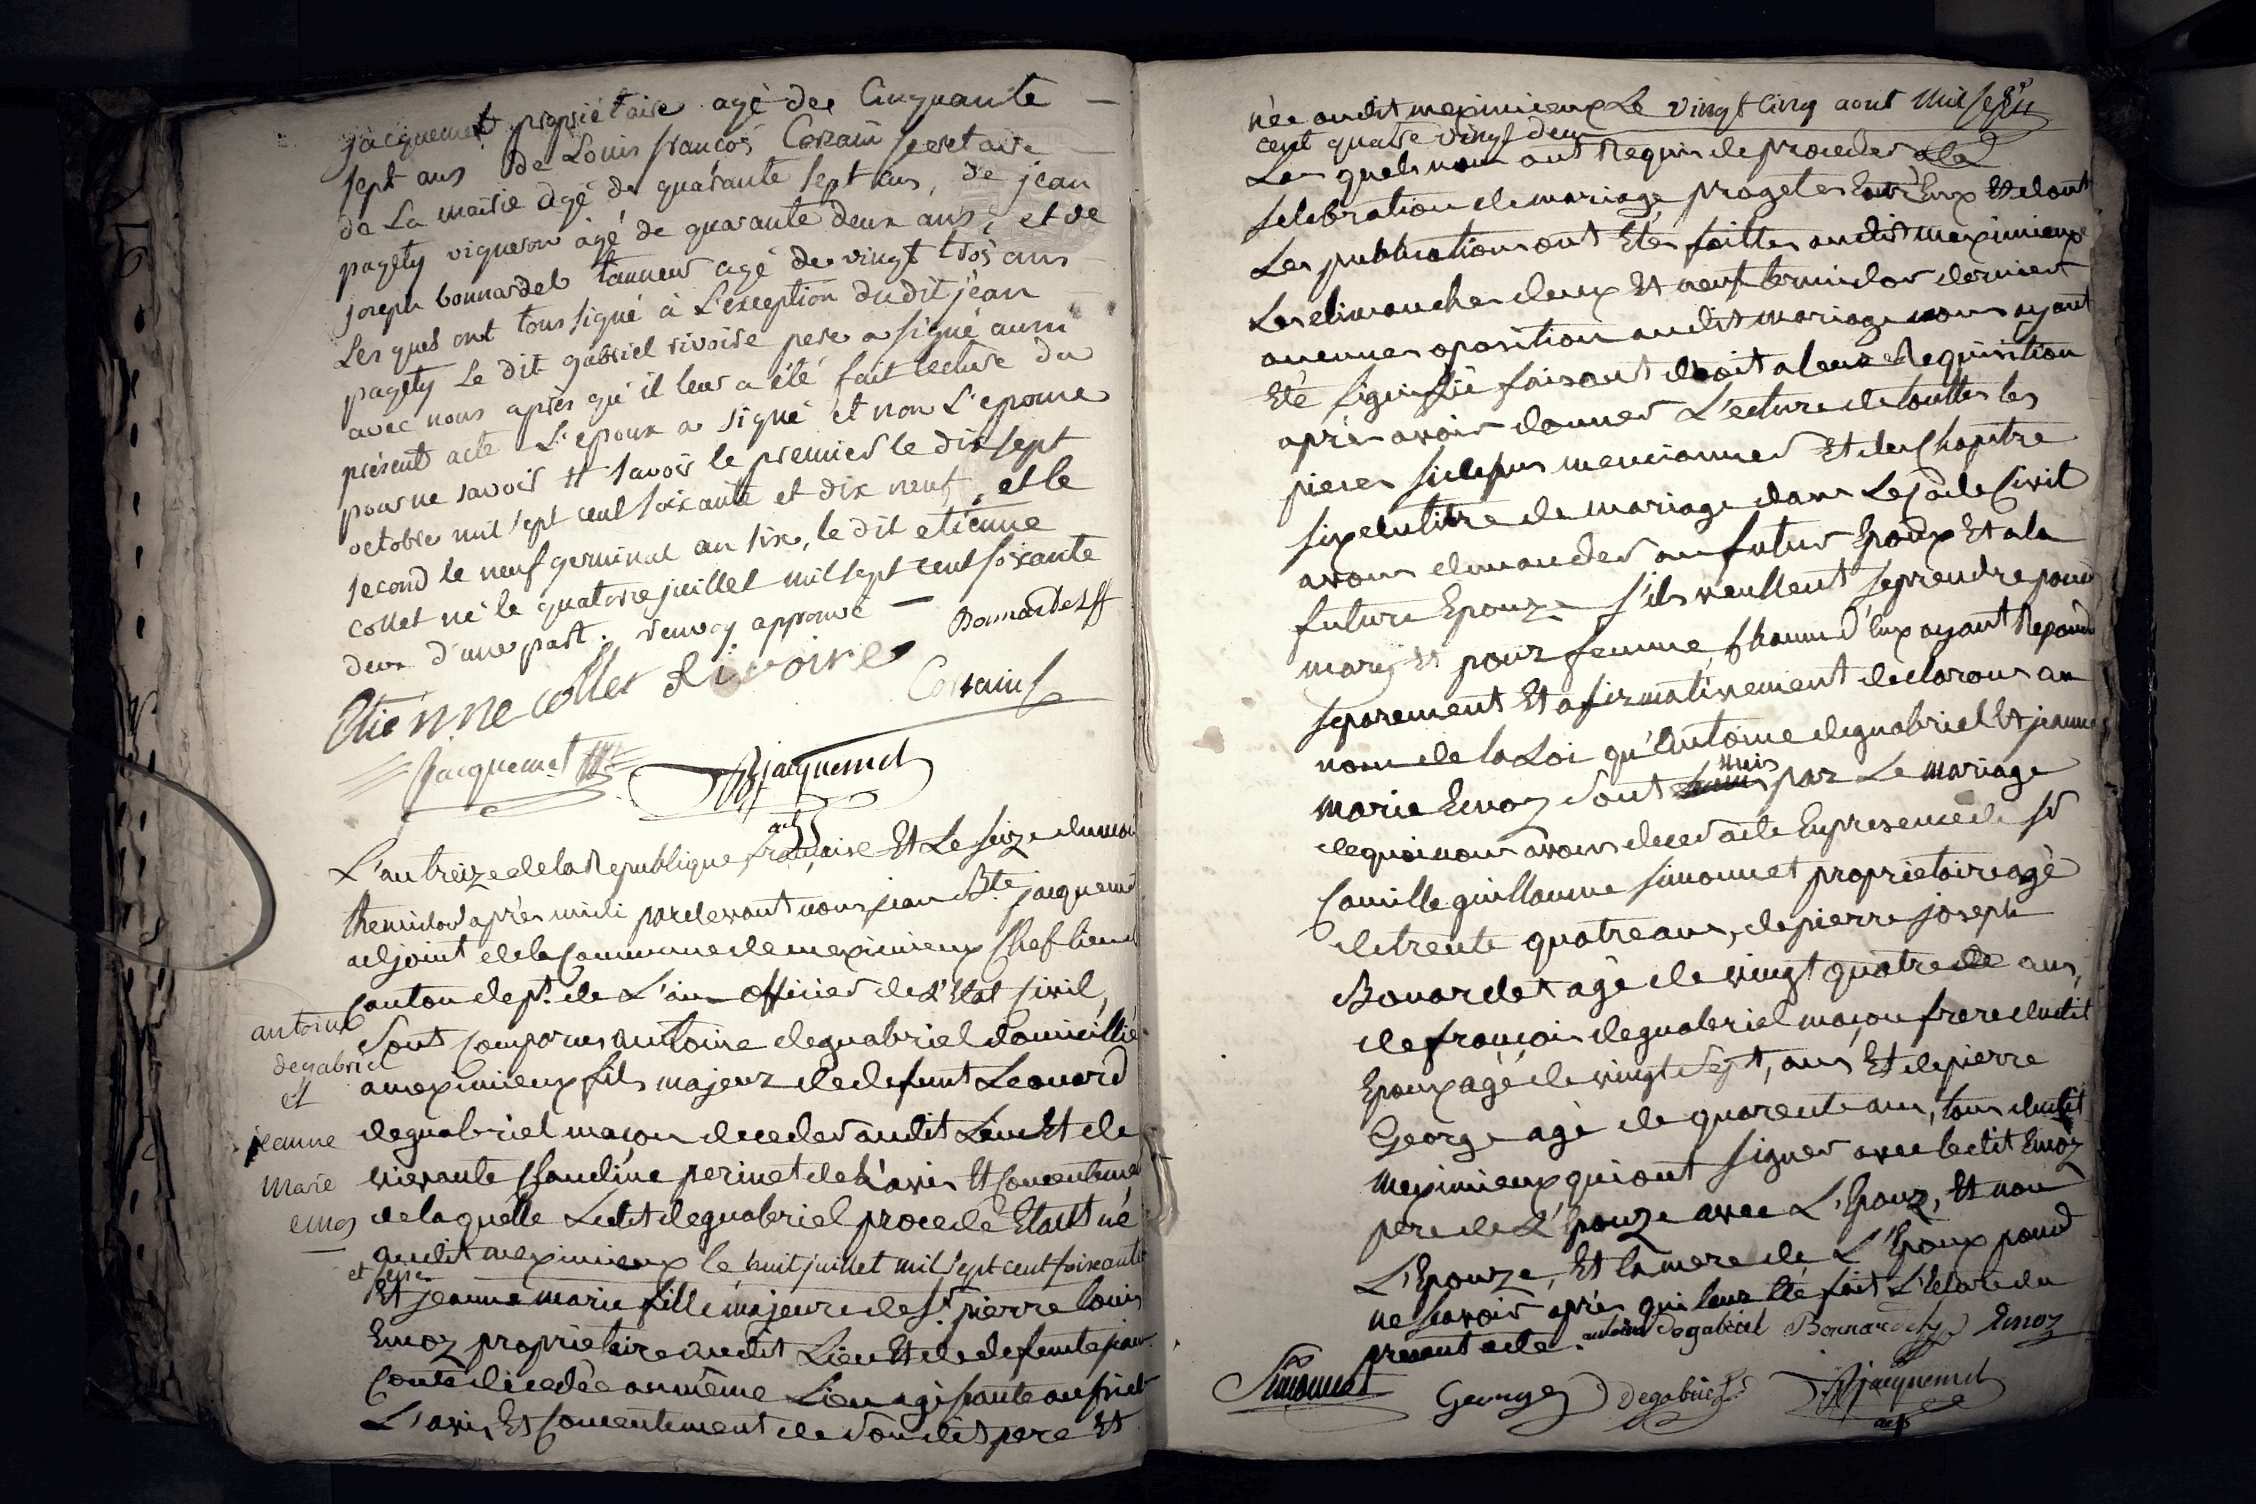 jacquemet propriétaire agé de Cinquante
sept ans de Louis françois Corzain secretaire
de La mairie agé de quarante sept ans, de jean
pagety vigneron agé de quarante deux ans, et de
joseph bonnardel tanneur agé de vingt trois ans
Les quels ont tous signé à L'exception du dit jean
pagety Le dit gabriel rivoire pere a signé aussi
avec nous après qu'il leur a été fait lecture du
présent acte L'epoux a signé et non L'epouse
pour ne savoir # savoir le premier le dix sept
octobre mil sept cent soixante et dix neuf, et le
second le neuf germinal an six, le dit etienne
collet né le quatorze juillet mil sept cent soixante
deux d'une part. renvoy approuvé —
Bonnardel
Etienne collet Rivoire
Corzain
Jacquemet
JB jacquemet
adj
L'an treize de la Republique française Et Le seize du mois
thermidor après midi pardevant nous jean Bte jacquemet
adjoint de la Commune de meximieux Chef lieu de
Canton dept. de L'ain officier de L'Etat Civil,
Sont Comparus antoine deguabriel domicillié
a meximieux fils majeur de defunt Leonard
deguabriel maçon decedes audit Lieu Et de
vivante Claudine perinet de L'avis Et Consentement
de laquelle Ledit deguabriel procede Etant né
audit meximieux le huit juillet mil sept cent soixante
et seize
Et jeanne marie fille majeure de Sr. pierre louis
Emoz proprietaire audit Lieu Et de defunte
Conte decedée au même Lieu agissante
L'avis Et Consentement de Son dit pere Et
antoine
degabriel
et
jeanne
Marie
emos
née audit meximieux Le vingt cinq aout Mil sept
cent quatre vingt deux
Les quels nous ont Requis de proceder a la
selebration de mariage progetes Entre Eux Et dont
Les publications ont Etés faittes audit meximieux
Les dimanches deux Et neuf termidor dernier
aucunes oposition audit mariage nous ayant
Eté Signiffié faisant droit a leur Requisition
après avoir donner L'ecture de touttes les
pieces sidesus mencionner Et de Chapitre
six du titre de mariage dans Le Code Civil
avons demander au futur Epoux Et a la
future Epouze S'ils veullent se prendre pour
mary Et pour femme, Chacun d'Eux ayant Repondu
separement Et afirmativement declarons au
nom de la Loi qu'Antoine deguabriel Et jeanne
unis
marie Emoz Sont par Le mariage
de quoi nous avons dressé acte En presence de Sr
Camille guillaume Simonnet proprietaire agé
de trente quatre ans, de pierre joseph
Bonardet agé de vingt quatre de ans,
de françois deguabriel maçon frere dudit
Epoux agé de vingt Sept, ans Et de pierre
George agé de quarente ans, tous dudit
Meximieux qui ont signer avec le dit Emoz
pere de L'Epouze avec L'Epoux, Et non
L'Epouze, Et la mere de L'Epoux pour
ne Savoir après qui leur Eté fait L'ecture du
present acte. antoine degabriel Bonnardet Emoz
Simonnet George Degabriel JB jacquemet
adj